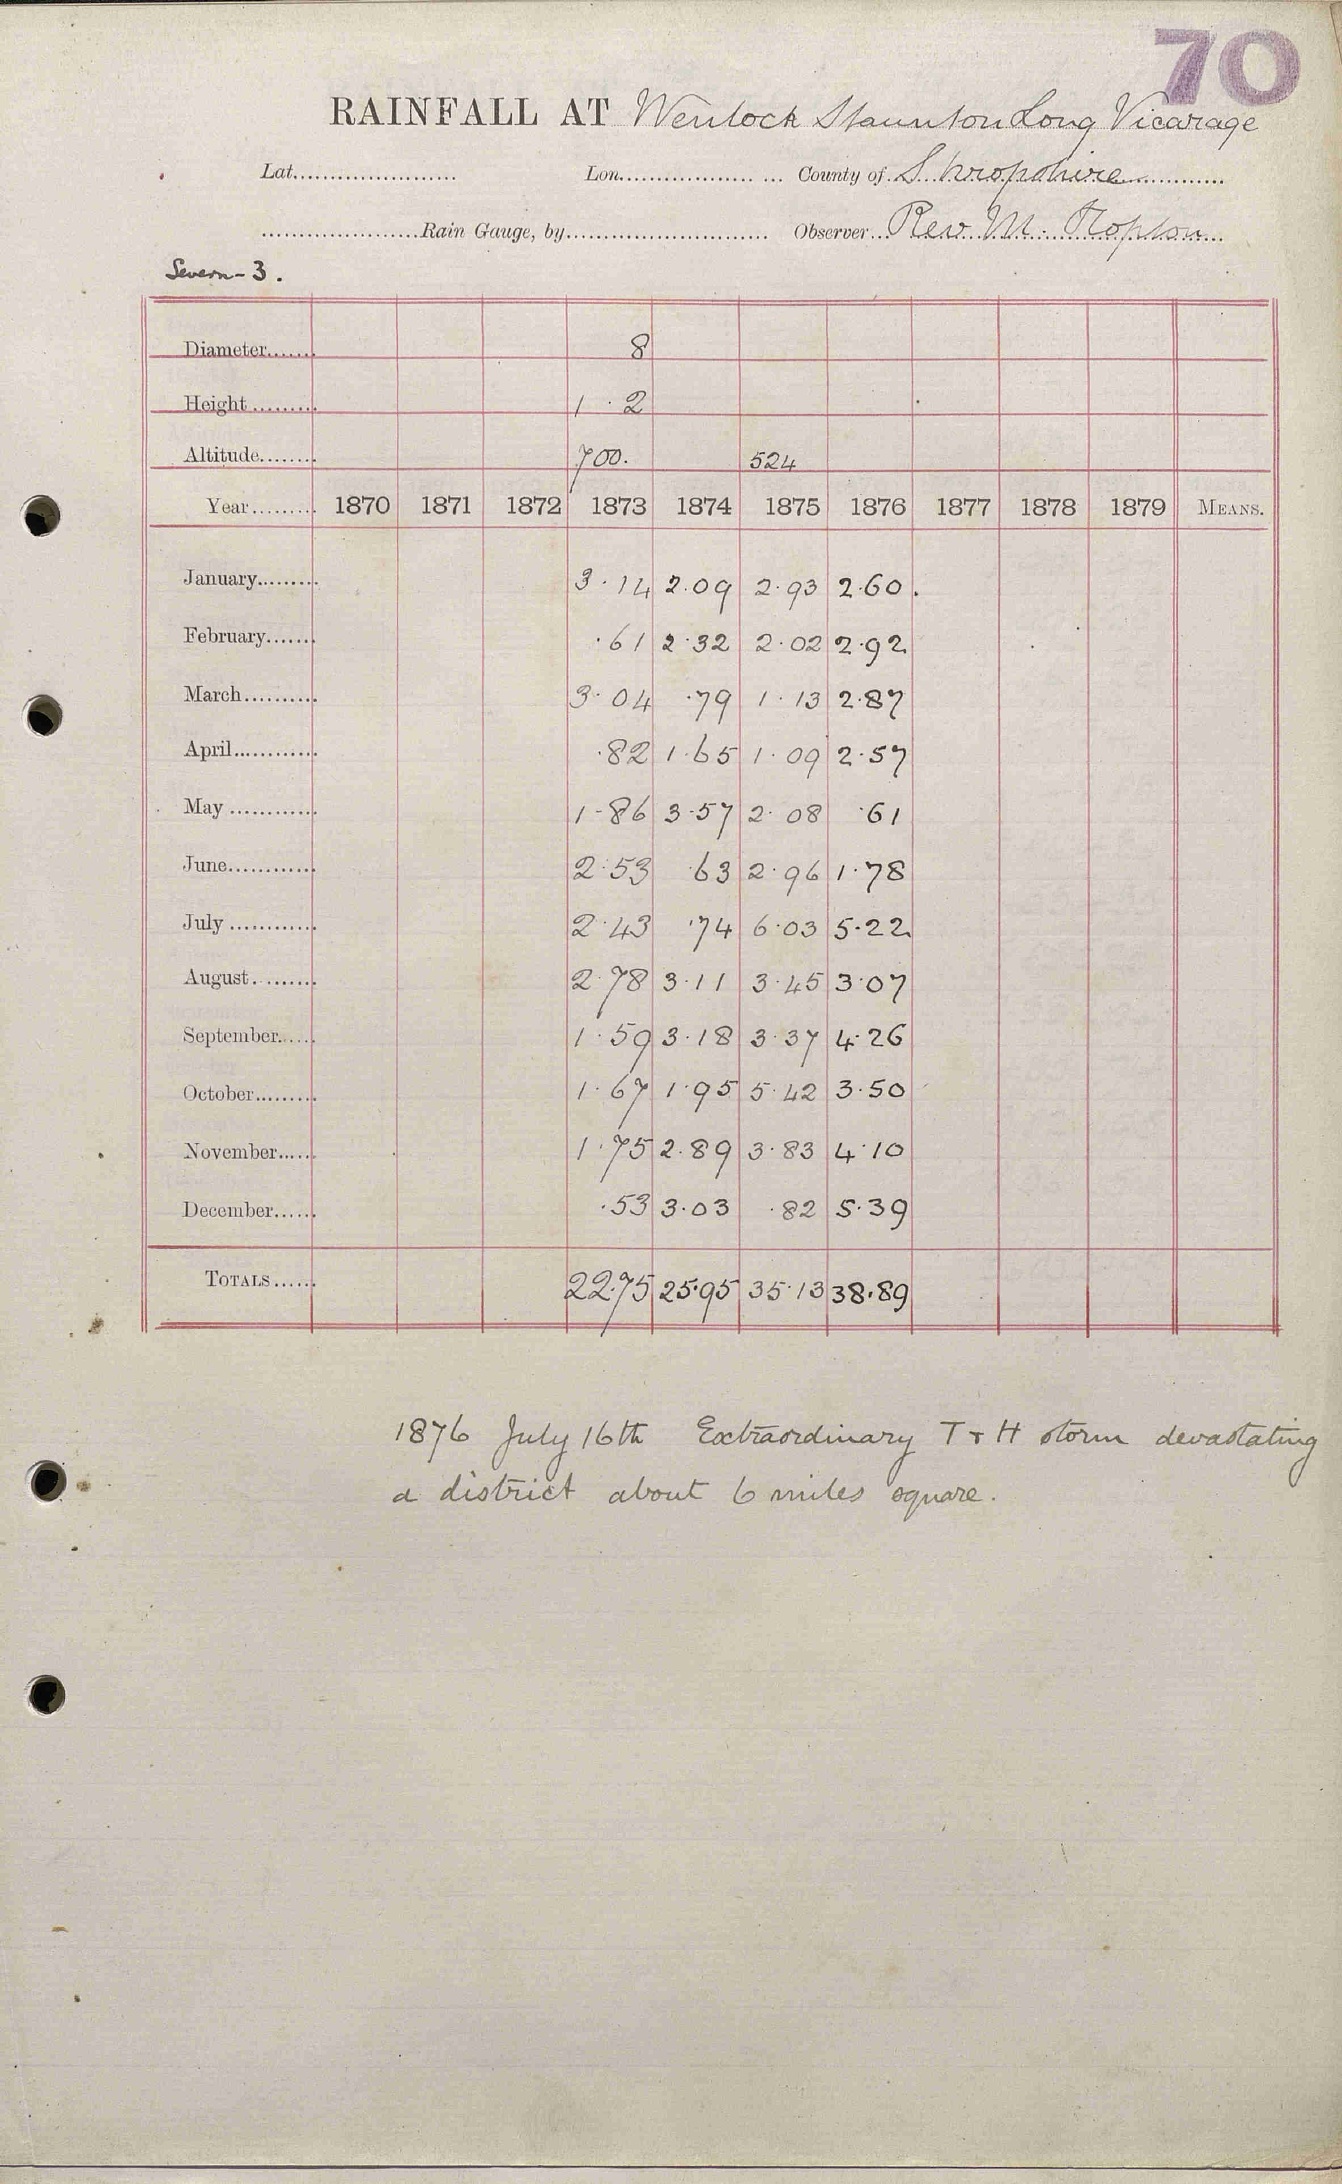 70
RAINFALL AT Wenlock Staunton Long Vicarage
Lat...................... Lon.................. ... County of Shropshire
.....................Rain Gauge, by........................... Observer... Rev M. Hopton
Severn - 3.
Diameter....... 8
Height......... 1 · 2
Altitude........ 700. 524
Year......... 1870 1871 1872 1873 1874 1875 1876 1877 1878 1879 MEANS.
January......... 3·14 2·09 2·93 2·60.
February....... ·61 2·32 2·02 2·92
March.......... 3·04 ·79 1·13 2·87
April............ ·82 1·65 1·09 2·57
May ............ 1·86 3·57 2·08 ·61
June............ 2·53 ·63 2·96 1·78
July ............ 2·43 ·74 6·03 5·22
August......... 2·78 3·11 3·45 3·07
September...... 1·59 3·18 3·37 4·26
October......... 1·67 1·95 5·42 3·50
November...... 1·75 2·89 3·83 4·10
December...... ·53 3·03 ·82 5·39
TOTALS...... 22·75 25·95 35·13 38·89
1876 July 16th Extraordinary T & H storm devastating
a district about 6 miles square.